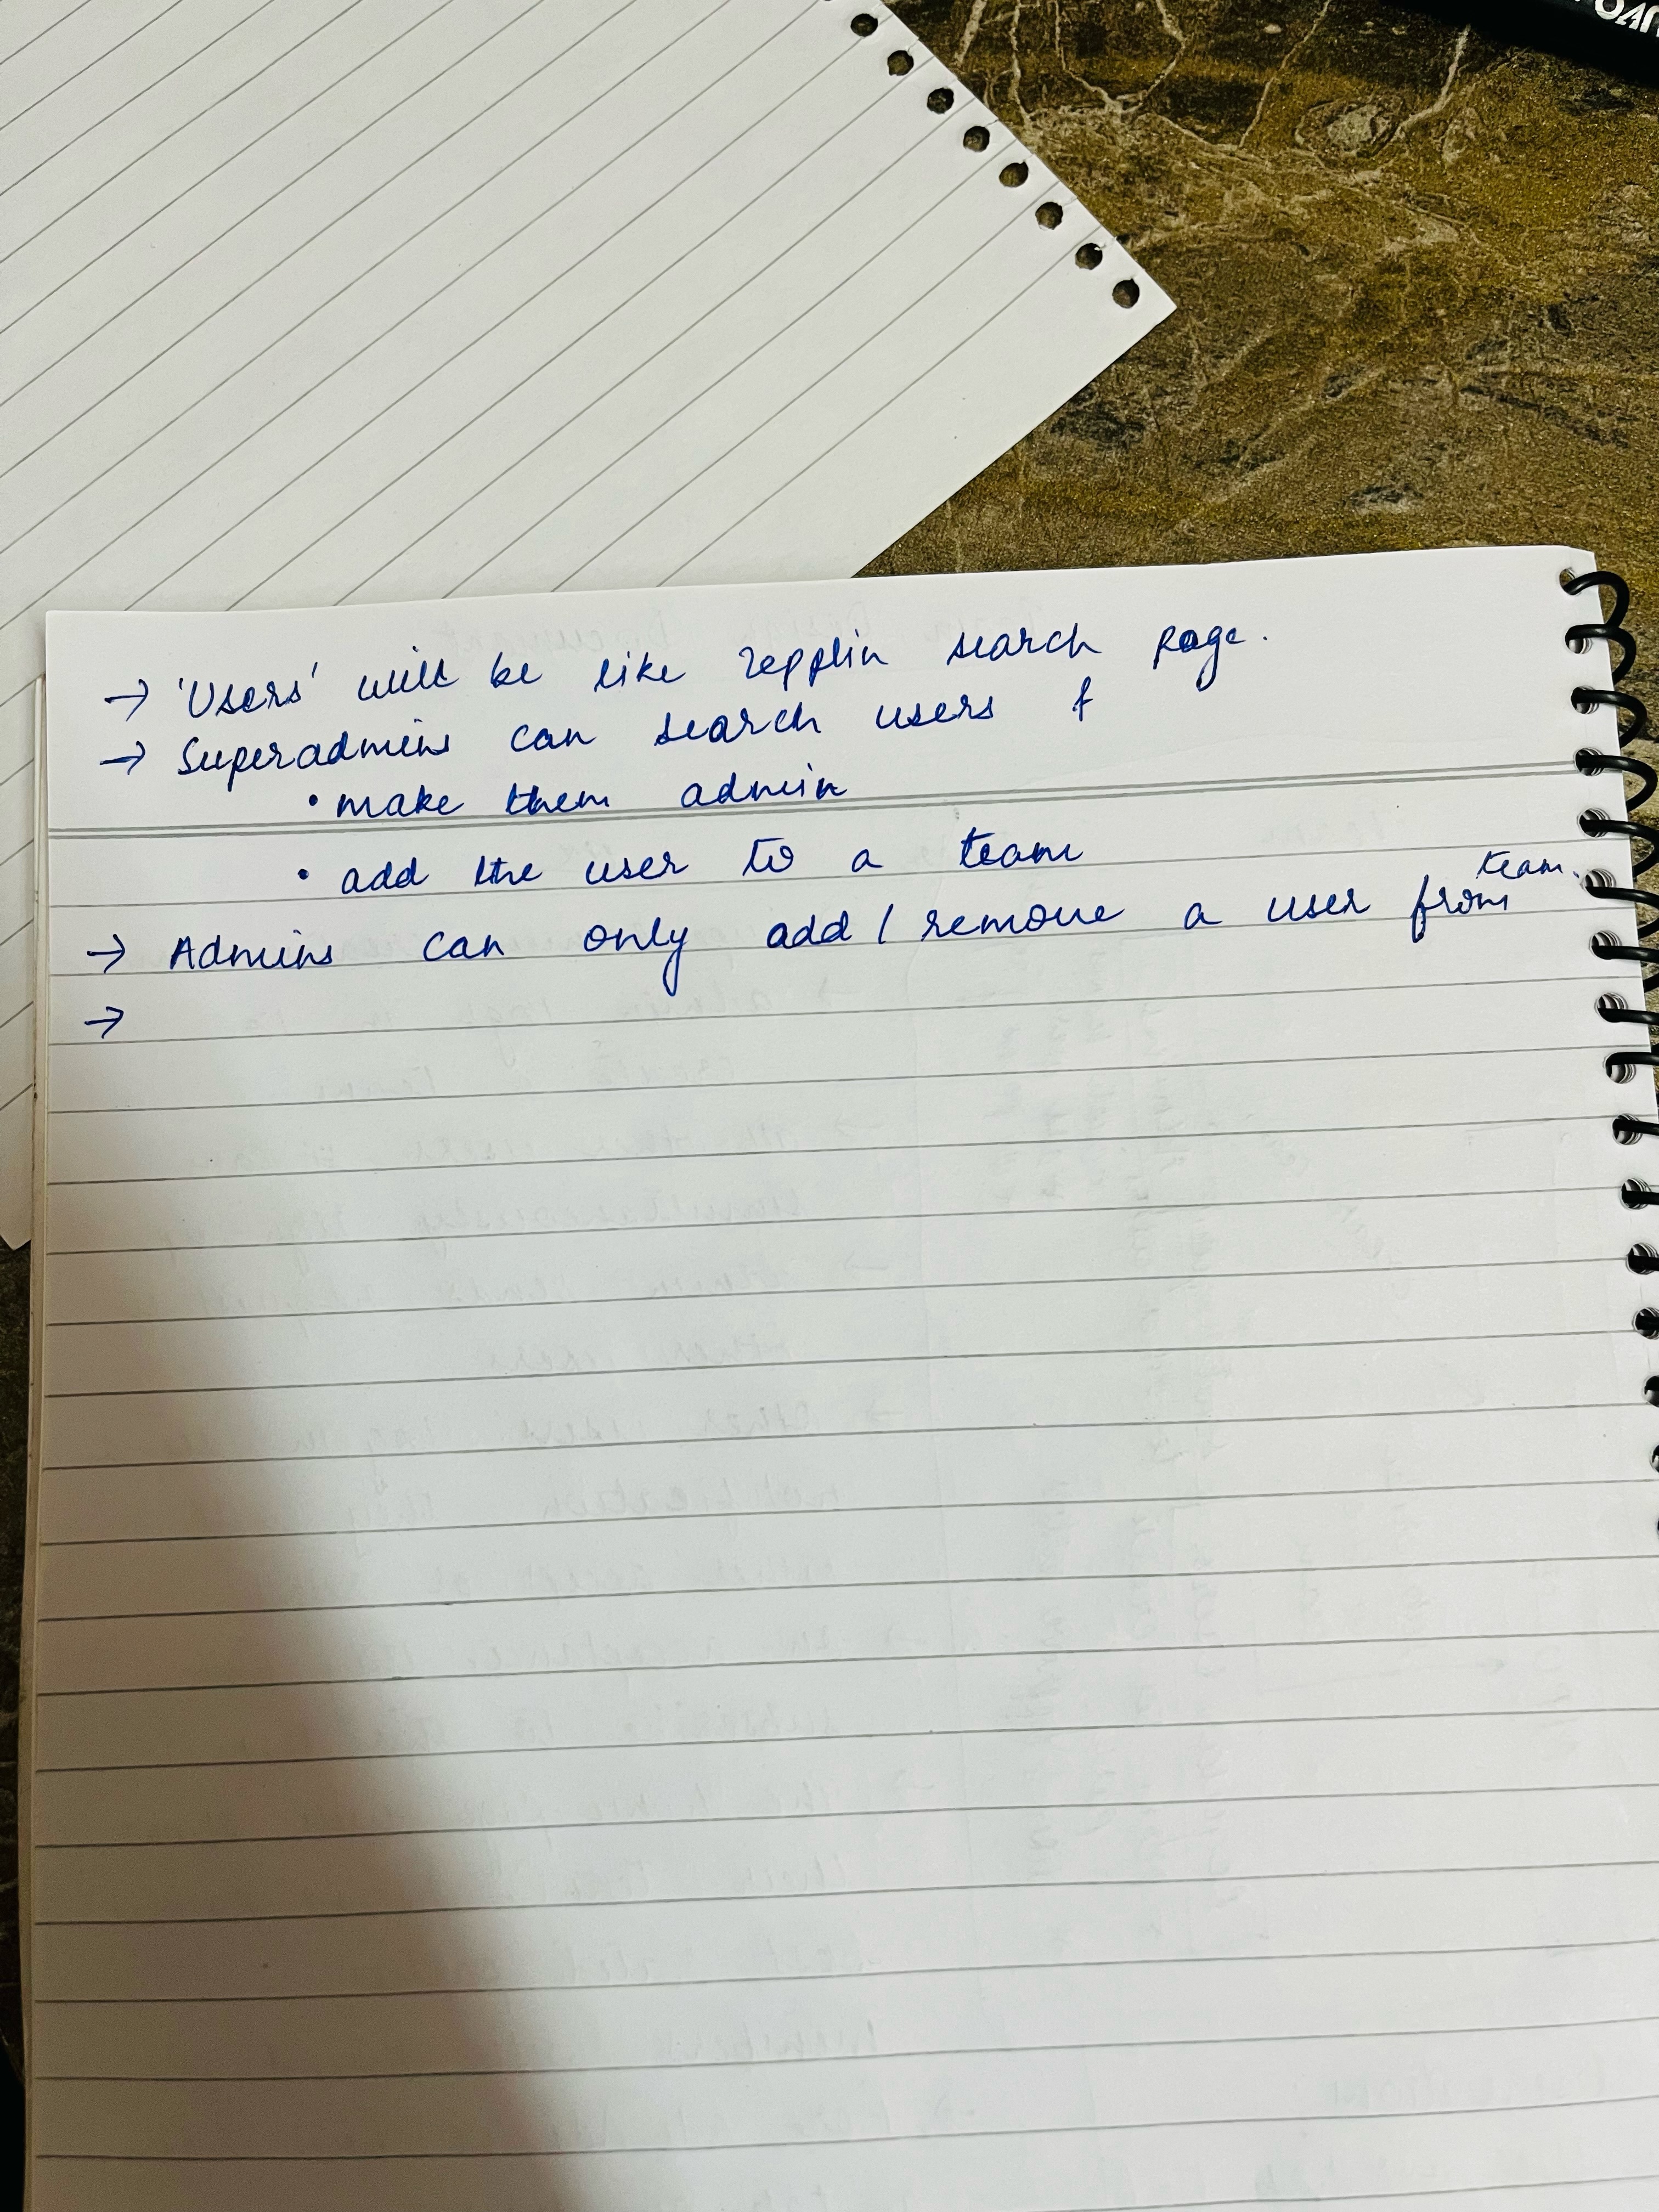 → 'Users' will be like zepplin search page.
→ Superadmins can search users &
• make them admin
• add the user to a team
→ Admins can only add / remove a user from team.
→